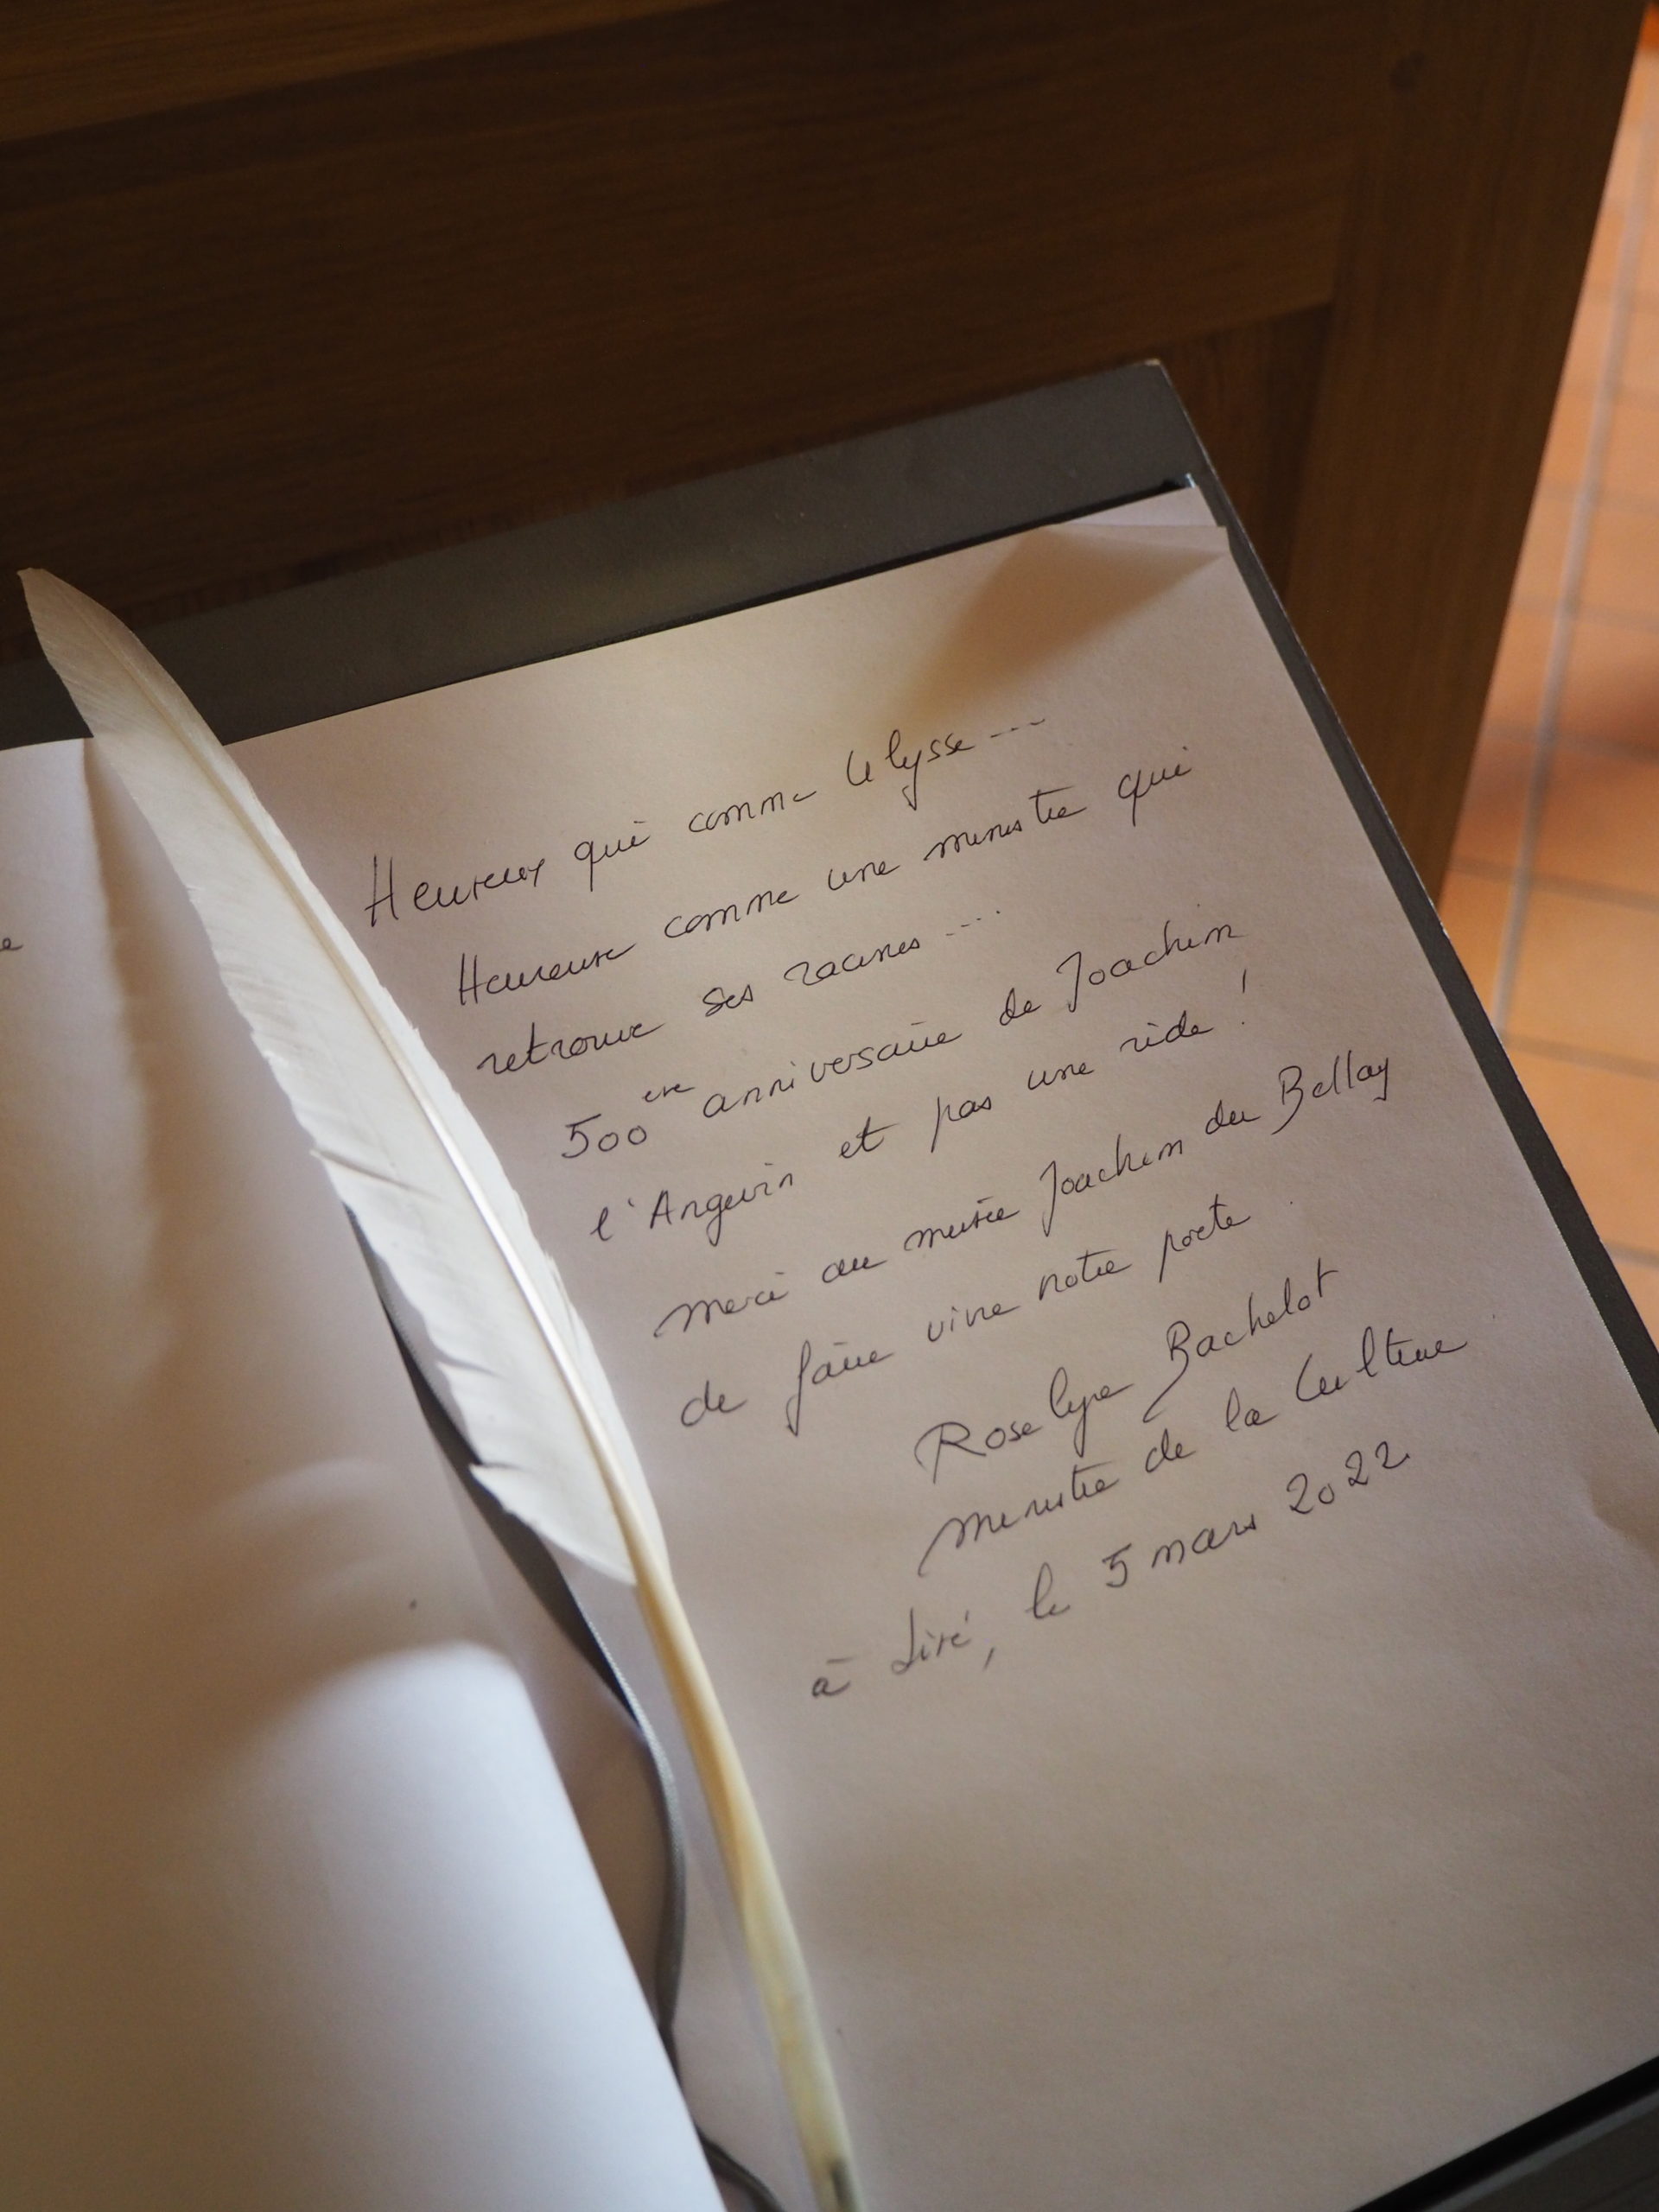 Heureux qui comme Ulysse ---
Heureuse comme une ministre qui
retrouve ses racines ...
500ème anniversaire de Joachim
l'Angevin et pas une ride !
merci au musée Joachim du Bellay
de faire vivre notre poète.
Roselyne Bachelot
ministre de la Culture
à Liré, le 5 mars 2022